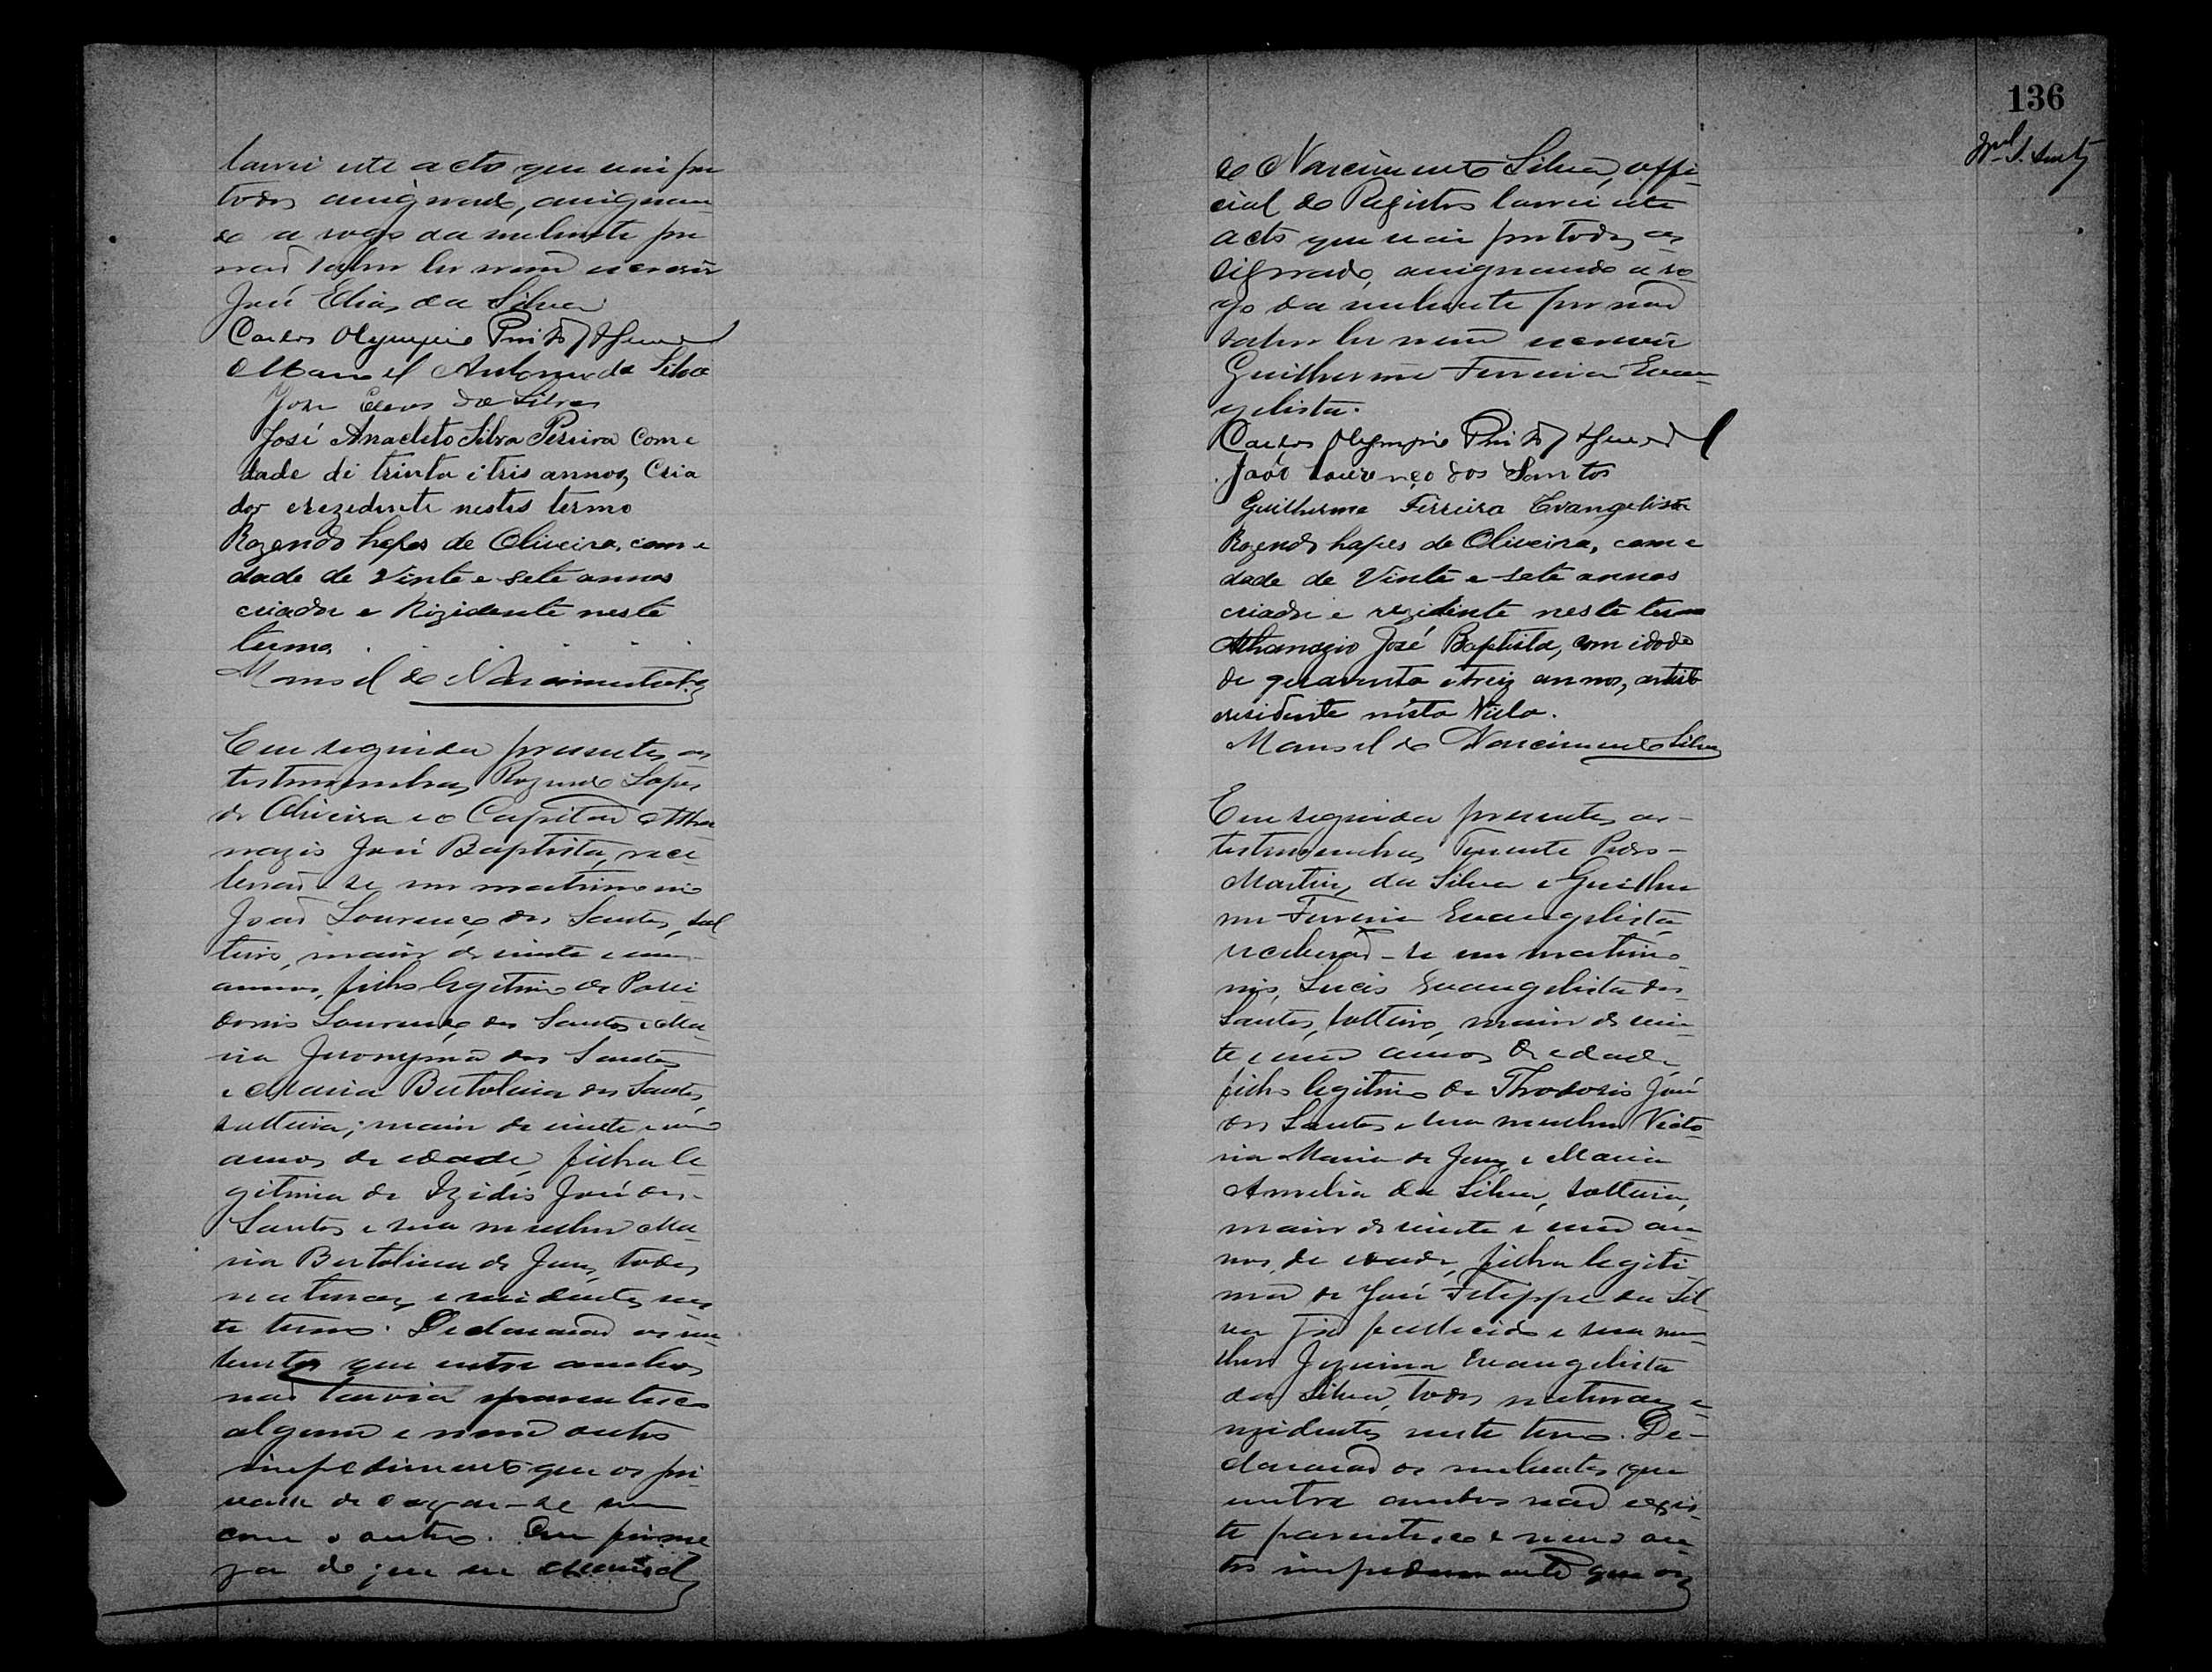 lavrei este acto que vai por
todos assignado, assignan
do a rogo da nubente por
não saber ler nem escrever
José Elias da Silva
Carlos Olympio Pinto
Manoel Antonio da Silva
José Elias da Silva
José Anacleto Silva Pereira Com e
dade di trinta i tris annos, Cria
dor erezedente nestes termo
Rozendo Lopes de Oliveira, com e
dade de Vinte e sete annos
criador e Rizidente neste
termo.
Manoel do Nascimento Sa
Em seguida presentes as
testemunhas, Rozendo Lopes
de Oliveira e o Capitão Atha
nazio José Baptista, rece
berão-se em matrimonio
João Lourenço dos Santos, sol
teiro, maior de vinte e um
annos, filho legitimo de Possi
donio Lourenço dos Santos e Ma
ria Jeronyma dos Santos
e Maria Bertolina dos Santos,
solteira; maior de vinte e um
annos de edade, filha le
gitima de Izidio José dos
Santos e sua mulher Ma
ria Bertolina de Jesus, todos
naturaes e residentes nes
te termo. Declararão os nu
bentes que entre ambos
não havia parentesco
algum e nem outro
impedimento que os pri
vasse de cazar-se um
com o outro. Em firme
za do que eu Manoel
136
do Nascimento Silva, offi
cial do Registro lavrei este
acto que vai por todos as
signado, assignando a ro
go da nubente por não
saber ler nem escrever
Guilherme Ferreira Evan
gelista.
Carlos Olympio Pinto
João Lourenço dos Santos
Guilherme Ferreira Evangelista
Rozendo Lopes de Oliveira, com e
dade de Vinte e sete annos
criador e rezidente neste termo
Athanazio José Baptista, com idade
de quarenta e treiz annos, artista
residente nésta Villa.
Manoel do Nascimento Silva
Em seguida presentes as
testemunhas, Tenente Pedro
Martins da Silva e Guilher
me Ferreira Evangelista,
receberão-se em matrimo
nio, Lucio Evangelista dos
Santos, solteiro, maior de vin
te e um annos de edade
filho legitimo de Theodosio José
dos Santos e sua mulher Victo
ria Maria de Jesus e Maria
Amelia da Silva, solteira,
maior de vinte e um an
nos de edade, filha legiti
ma de José Felippe da Sil
va já fallecido e sua mu
lher Evangelista
da Silva, todos naturaes e
rezidentes neste termo. De
clararão os nubentes que
entre ambos não exis
te parentesco e nem ou
tro impedimento que os